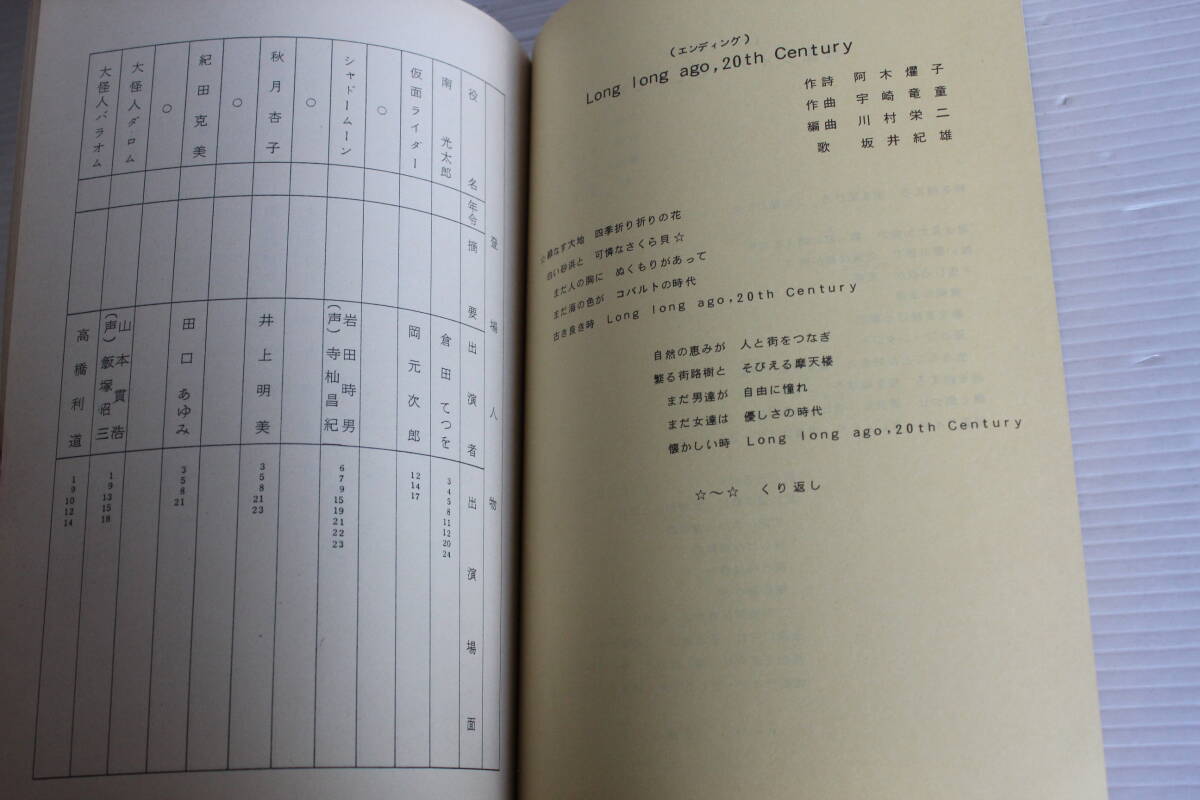 (エンディング)
Long long ago,20th Century
作詩 阿木燿子
作曲 宇崎竜童
編曲 川村栄二
歌 坂井紀雄
☆緑なす大地 四季折り折りの花
白い砂浜と 可憐なさくら貝☆
まだ人の胸に ぬくもりがあって
まだ海の色が コバルトの時代
古き良き時 Long long ago,20th Century
自然の恵みが 人と街をつなぎ
繁る街路樹と そびえる摩天楼
まだ男達が 自由に憧れ
まだ女達は 優しさの時代
懐かしい時 Long long ago,20th Century
☆〜☆ くり返し
登場人物
役名 年令 摘要 出演者 出演場面
南 光太郎 倉田てつを 3 4 5 8 11 12 20 24
仮面ライダー 岡元次郎 12 14 17
○
シャドームーン 岩田時男 (声)寺杣昌紀 6 7 9 15 19 21 22 23
○
秋月杏子 井上明美 3 5 8 21 23
○
紀田克美 田口あゆみ 3 5 8 21
○
大怪人ダロム 山本貫浩 (声)飯塚昭三 1 9 13 15 18
大怪人バラオム 高橋利道 1 9 10 12 14